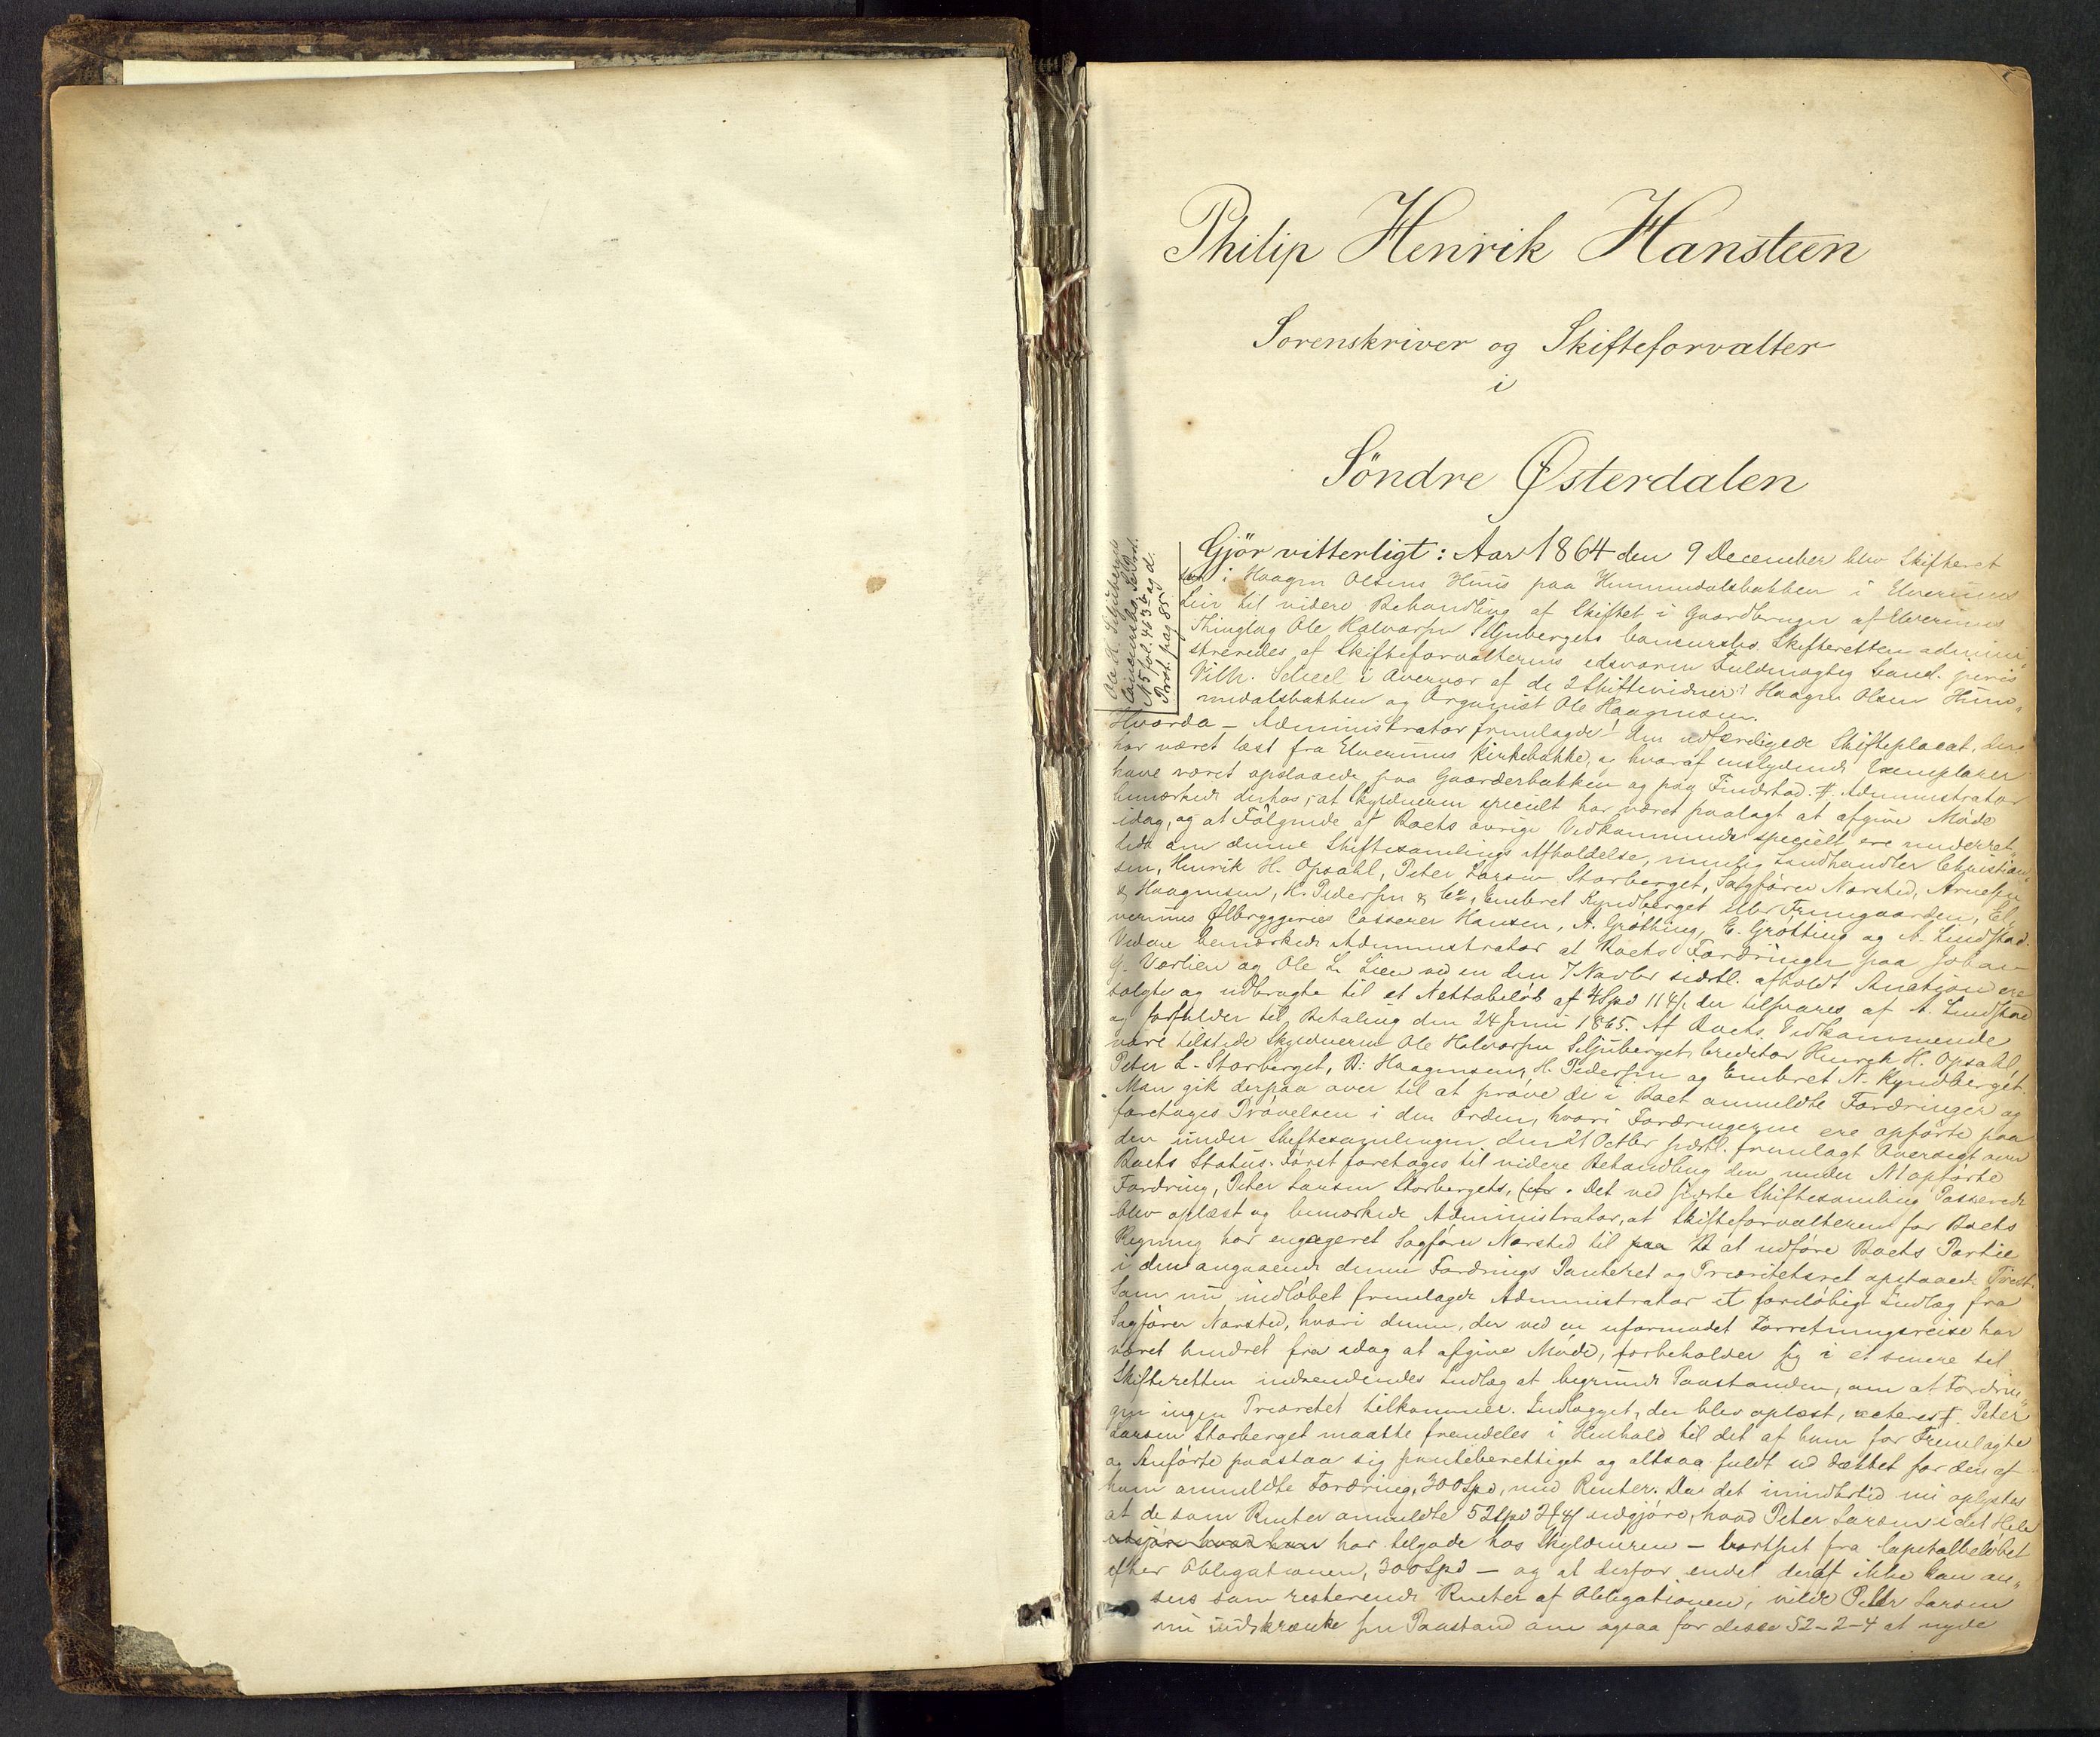 Philip Henrik Hansteen
Sorenskriver og Skifteforvalter
i
Söndre Østerdalen
Ole H. Siljubergets
Concursbo, Se Prot.
N 5 fol. 463 b og d.
Prot. pag 85
Gjör vitterligt: Aar 1864 den 9 December blev Skifteret
sat i Haagen Olsens Huus paa Hummedalsbakken i Elverums
Leir til videre Behandling af Skiftet i Gaardbruger af Elverums
Thinglag Ole Halvorsen Siljubergets Concursbo. Skifteretten admini„
streredes af Skifteforvalterens edsvorne Fuldmægtig Cand. juris
Vilh. Scheel i Overvær af de 2 Skiftevidner: Haagen Olsen Hum„
medalsbakken og Organist Ole Haagensen.
Hvorda – Administrator fremlagde den udfærdigede Skifteplacat, der
har været læst fra Elverums Kirkebakke, og hvoraf enslydende Exemplarer
have været opslaaede paa Gaarderbakken og paa Findstad. Administrator
bemærkede derhos, at Skyldneren specielt har været paalagt at afgive Møde
idag, og at Følgende af Boets øvrige Vedkommende specielt ere underret„
tede om denne Skiftesamlings Afholdelse, nemlig Landhandler Christian„
sen, Henrik H. Opsahl, Peter Larsen Storberget, Sagfører Nørsted, Arnesen
& Haagensen, H. Pedersen & Co, Embret Kyndberget eller Fremgaarden, El„
verums Ølbryggeries Casserer Hansen, A. Grøtting, E. Grøtting og A. Lindstad.
Videre bemærkede Administrator at Boets Fordringer paa Johan
G. Værlien og Ole L. Lien ved en den 7 Novbr sidstl. afholdt Auction ere
solgte og udbragte til et Nettobeløb af 4 Spd 114 ß, der tilsvares af A. Lindstad
og forfalder til Betaling den 24 Juni 1865. Af Boets Vedkommende
vare tilstede Skyldneren Ole Halvorsen Siljuberget, Creditor Henrik H. Opsahl,
Peter L. Storberget, B. Haagensen, H. Pedersen og Embret N. Kyndberget.
Man gik derpaa over til at prøve de i Boet anmeldte Fordringer og
foretages Prøvelsen i den Orden, hvori Fordringerne ere opførte paa
den under Skiftesamlingen den 21 Octbr sidstl. fremlagt Oversigt over
Boets Status. Først foretages til videre Behandling den under N 1 opførte
Fordring, Peter Larsen Storbergets. Det ved sidste Skiftesamling Passerede
blev oplæst og bemærkede Administrator, at Skifteforvalteren for Boets
Regning har engageret Sagfører Nørsted til at udføre Boets Partie
i den angaaende denne Fordrings Panteret og Prioritetsret opstaaede Tvist.
Som nu indløbet fremlagde Administrator et foreløbigt Indlæg fra
Sagfører Nørsted, hvori denne, der ved en uformodet Forretningsreise har
været hindret fra idag at afgive Møde, forbeholder sig i et senere til
Skifteretten indsendendes Indlæg at begrunde Paastanden, om at Fordrin„
gen ingen Prioritet tilkommer. Indlægget, der blev oplæst, acteres. Peter
Larsen Storberget maatte fremdeles i Henhold til det af ham før Fremlagte
og Anførte paastaa sig panteberettiget og altsaa fuldt ud dækket for den af
ham anmeldte Fordring, 300 Spd, med Renter. Da det imidlertid nu oplystes
at de som Renter anmeldte 52 Spd 2 4 ß udgjøre, hvad Peter Larsen i det Hele
udgjør hvad han har tilgode hos Skyldneren – bortset fra Capitalbeløbet
efter Obligationen, 300 Spd – og at derfor endel deraf ikke kan an„
sees som resterende Renter af Obligationen, vilde Peter Larsen
nu indskrænke sin Paastand om ogsaa for disse 52–2–4 at nyde